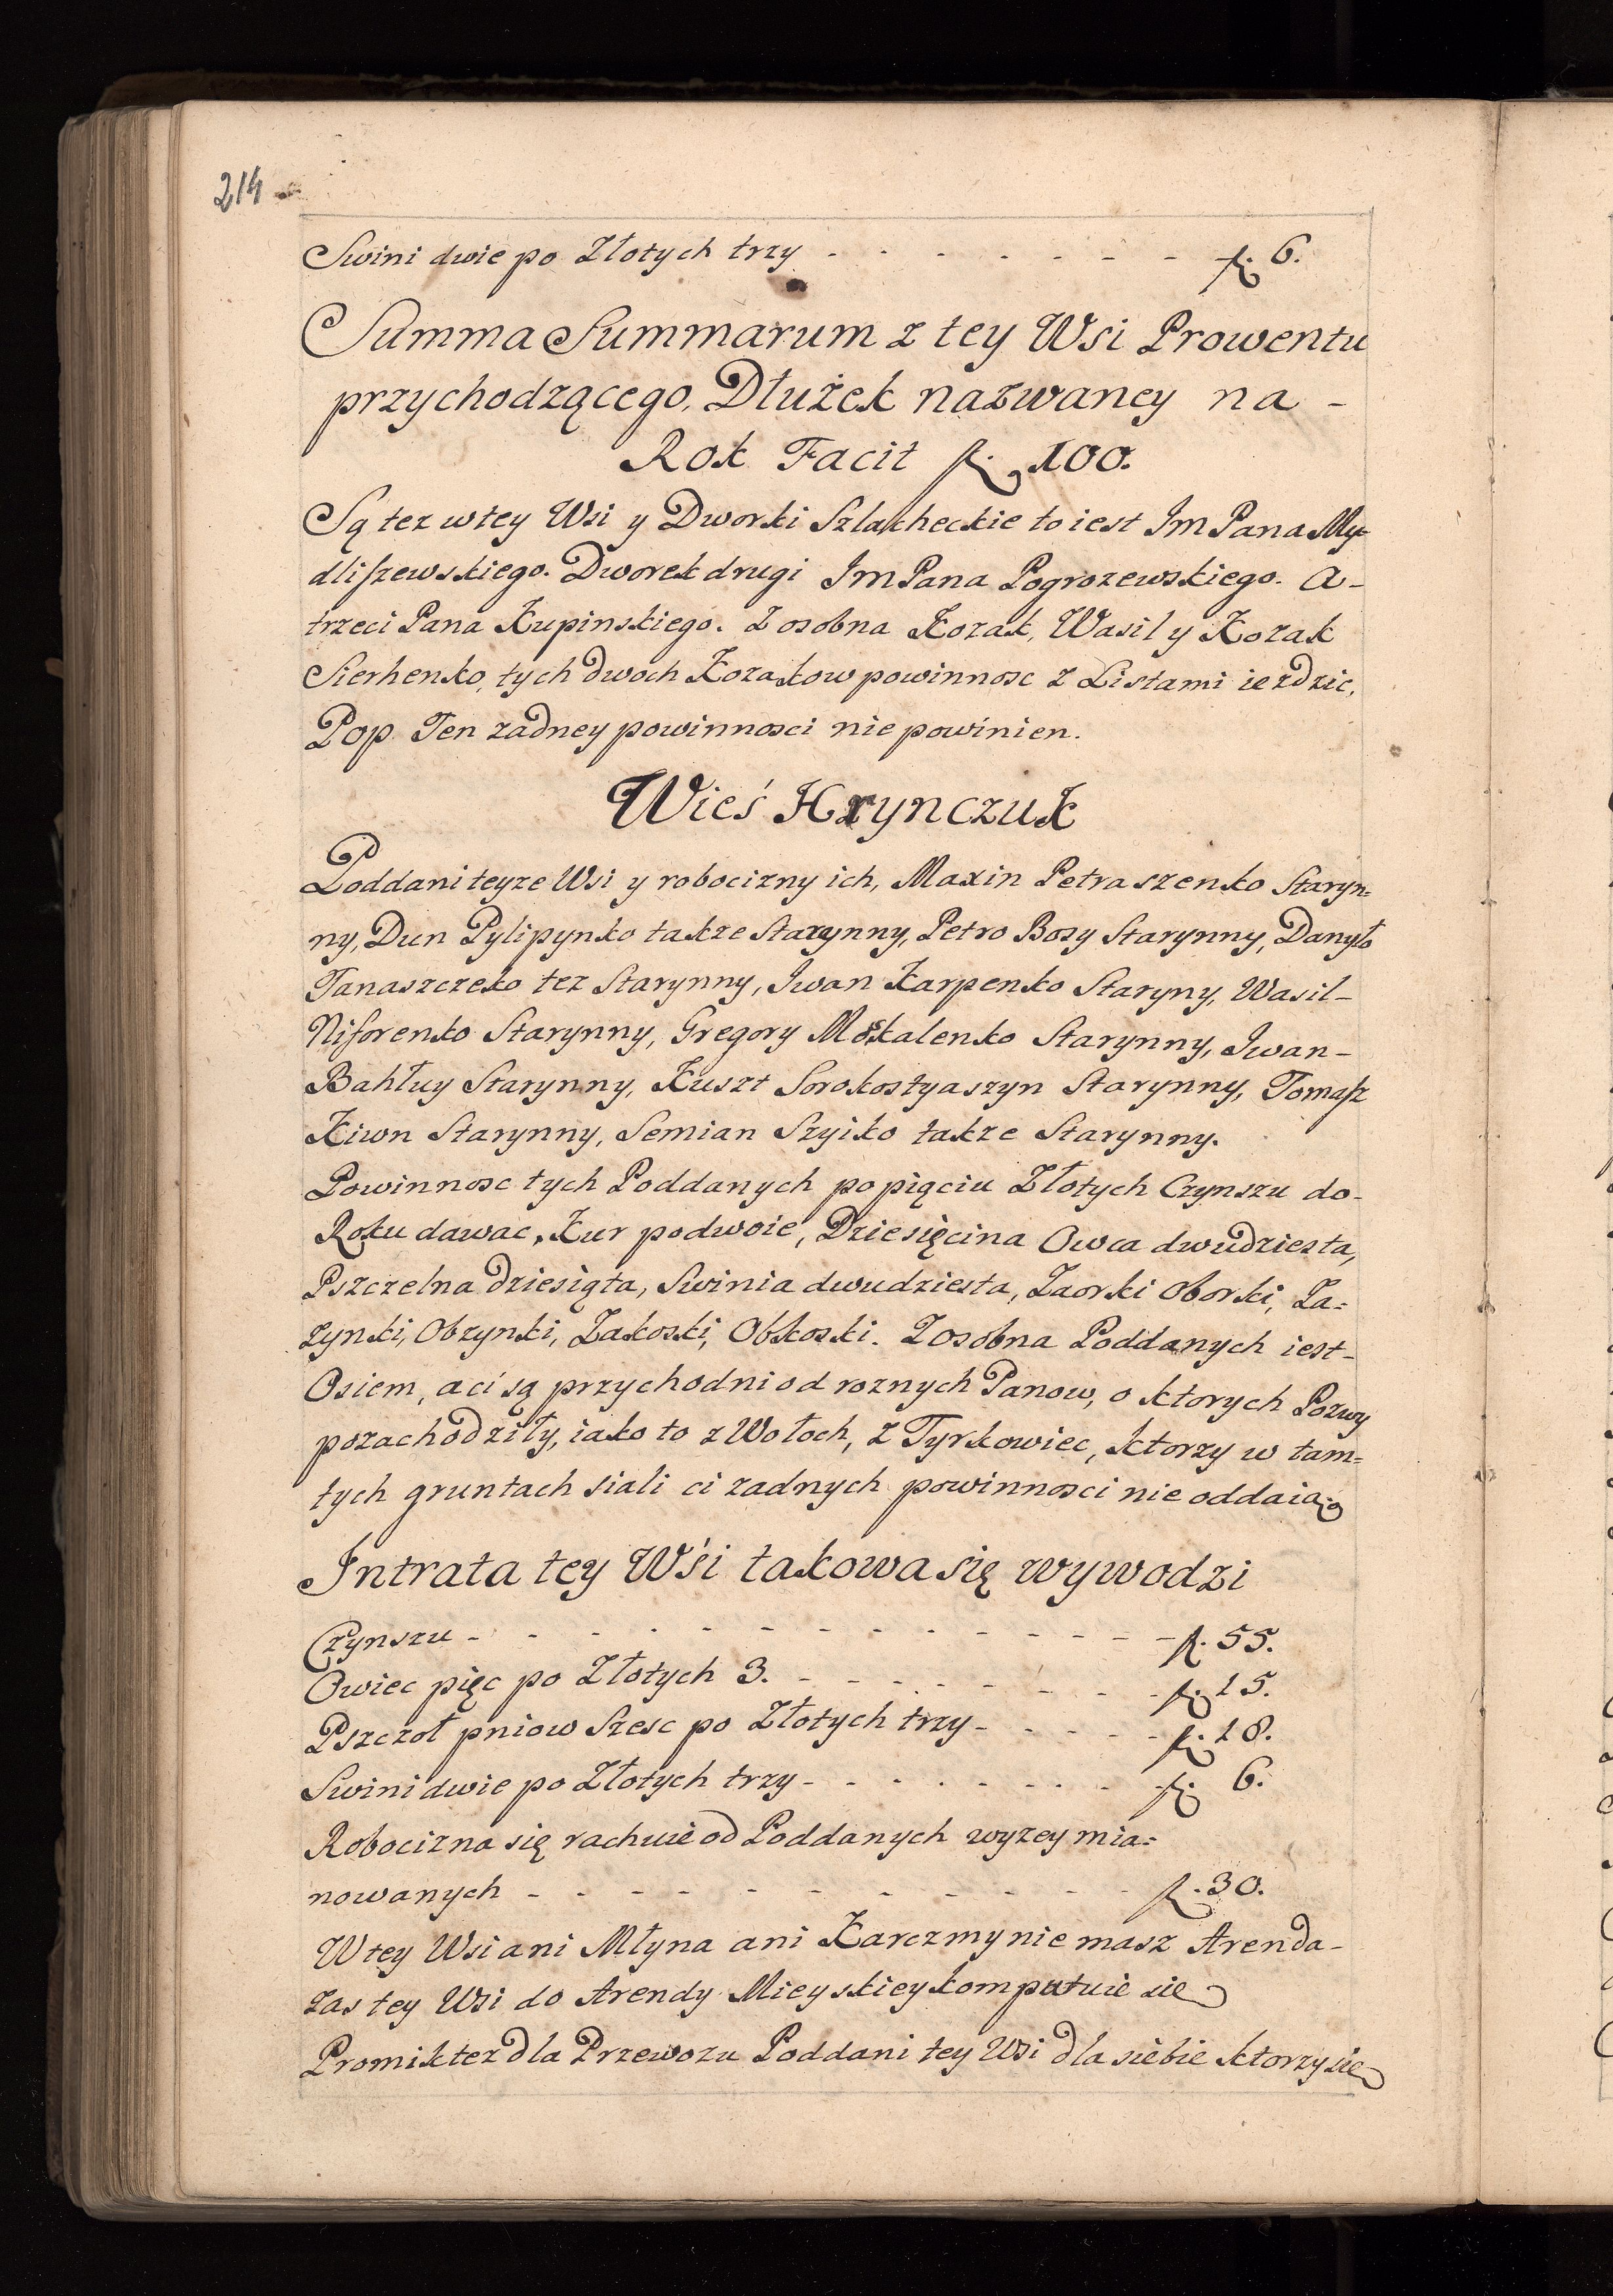 214
Swini dwie po Złotych trzy - - - - - - - - fl. 6.
Summa Summarum z tey Wsi Prowentu
przychodzącego, Dłużek nazwaney na -
Rok Facit fl. 100.
Są tez w tey Wsi y Dworki Szlacheckie to iest Jm Pana My-
dliszewskiego. Dworek drugi Jm Pana Pogrozewskiego. A -
trzeci Pana Kupinskiego. Z osobna Kozak, Wasil y Kozak
Sierhenko, tych dwoch Kozakow powinnosc z Listami iezdzic,
Pop. Ten zadney powinnosci nie powinien.
Wieś Hrynczuk
Poddani teyze Wsi y robocizny ich, Maxin Petraszenko Staryn=
ny, Dun Pylipynko takze Starynny, Petro Bosy Starynny, Danyło
Tanaszczeko tez Starynny, Jwan Karpenko Staryny, Wasil -
Niforenko Starynny, Gregory Moskalenko Starynny, Jwan -
Bahłuy Starynny, Kuszt Sorokostyaszyn Starynny, Tomasz
Kiwn Starynny, Semian Szyiko takze Starynny.
Powinnosc tych Poddanych po pięciu Złotych Czynszu do -
Roku dawac, Kur podwoie, Dziesięcina Owca dwudziesta,
Pszczelna dziesiąta, Swinia dwudziesta, Zaorki Oborki, Za=
zynki, Obzynki, Zakoski, Obkoski. Zosobna Poddanych iest -
Osiem, a ci są przychodni od roznych Panow, o ktorych Pozwy
pozachodziły, iako to z Wołoch, z Tyrkowiec, ktorzy w tam=
tych gruntach siali ci zadnych powinnosci nie oddaią
Intrata tey Wśi takowa się wywodzi
Czynszu - - - - - - - - - - - - - - fl. 55.
Owiec pięc po Złotych 3. - - - - - - - - fl. 15.
Pszczoł pniow Szesc po Złotych trzy - - - - - fl. 18.
Swini dwie po Złotych trzy - - - - - - - - fl. 6.
Robocizna się rachuie od Poddanych wyzey mia=
nowanych - - - - - - - - - - - - fl. 30.
W tey Wsi ani Młyna ani Karczmy nie masz Arenda -
zas tey Wsi do Arendy Mieyskiey komputuie sie
Promik tez dla Przewozu Poddani tey Wsi dla siebie ktorzy sie